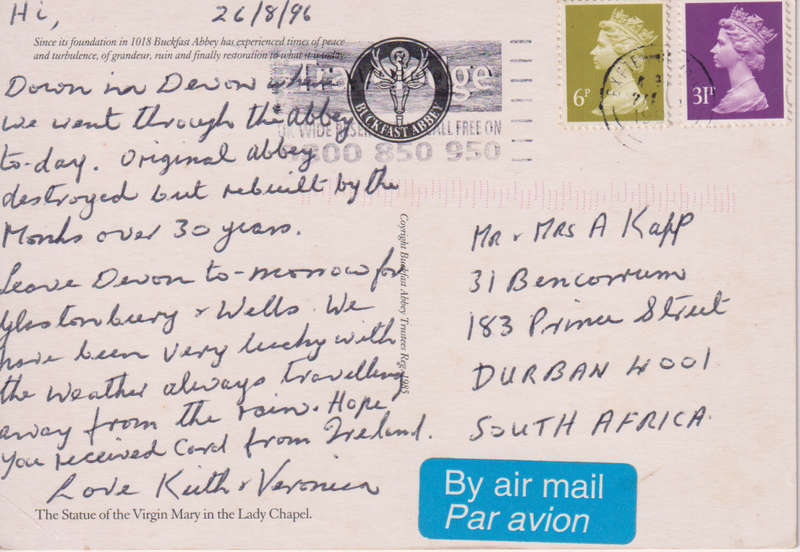 Hi, 26/8/96
Since its foundation in 1018 Buckfast Abbey has experienced times of peace
and turbulence, of grandeur, ruin and finally restoration to what it is today.
Down in Devon where
we went through the Abbey
to-day. Original abbey
destroyed but rebuilt by the
Monks over 30 years.
Leave Devon to-morrow for
Glastonbury & Wells. We
have been very lucky with
the weather always travelling
away from the rain. Hope
you received Card from Ireland.
Love Keith & Veronica
The Statue of the Virgin Mary in the Lady Chapel.
BUCKFAST ABBEY
UK WIDE ALL FREE ON
0800 850 950
6P
31P
Copyright Buckfast Abbey Trustees Reg. 1985
Mr & Mrs A Kapp
31 Bencorrum
183 Prince Street
DURBAN 4001
SOUTH AFRICA.
By air mail
Par avion